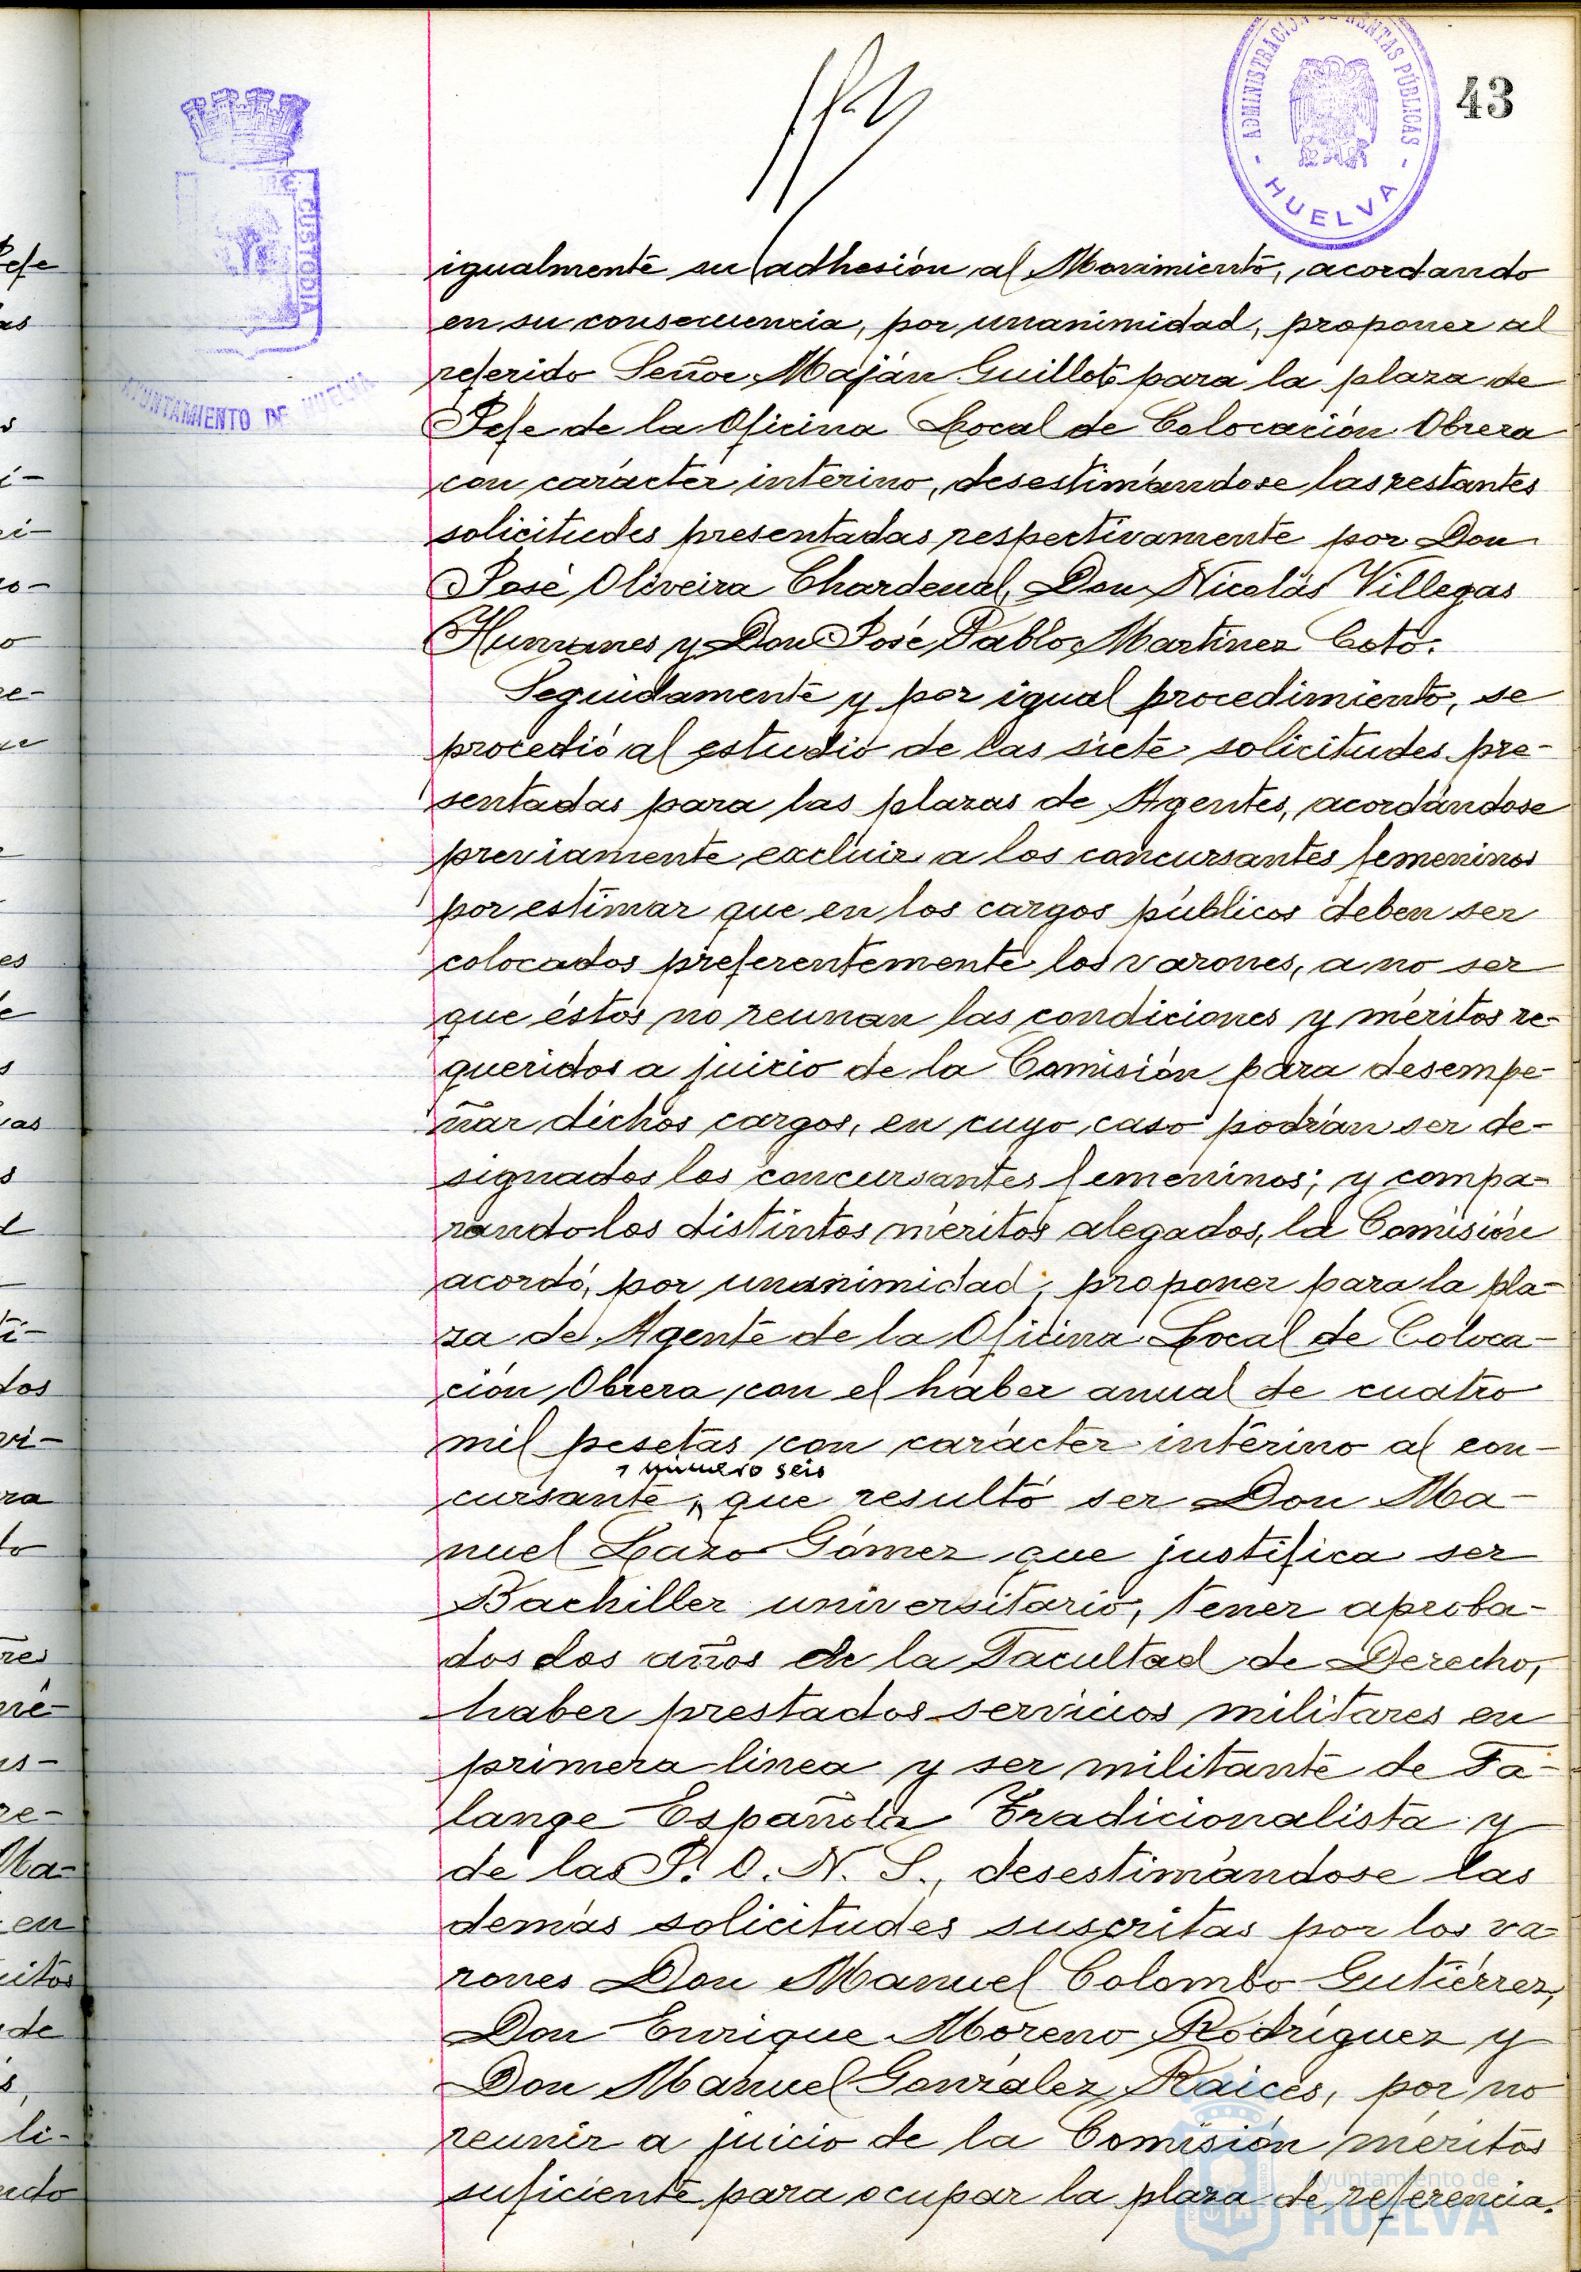 43
ADMINISTRACIÓN DE RENTAS PÚBLICAS
- HUELVA -
CUSTODIA
AYUNTAMIENTO DE HUELVA
igualmente su adhesión al Movimiento, acordando
en su consecuencia, por unanimidad, proponer al
referido Señor Maján Guillot para la plaza de
Jefe de la Oficina Local de Colocación Obrera
con carácter interino, desestimándose las restantes
solicitudes presentadas respectivamente por Don
José Oliveira Chardenal, Don Nicolás Villegas
Humanes y Don José Pablo Martinez Coto.
Seguidamente y por igual procedimiento, se
procedió al estudio de las siete solicitudes pre-
sentadas para las plazas de Agentes, acordándose
previamente excluir a los concursantes femeninos
por estimar que en los cargos públicos deben ser
colocados preferentemente los varones, a no ser
que éstos no reunan las condiciones y méritos re-
queridos a juicio de la Comisión para desempe-
ñar dichos cargos, en cuyo caso podrán ser de-
signados los concursantes femeninos; y compa-
rando los distintos méritos alegados, la Comisión
acordó, por unanimidad, proponer para la pla-
za de Agente de la Oficina Local de Coloca-
ción Obrera con el haber anual de cuatro
mil pesetas con carácter interino al con-
número seis
cursante, que resultó ser Don Ma-
nuel Lazo Gómez que justifica ser
Bachiller universitario, tener aproba-
dos dos años de la Facultad de Derecho,
haber prestados servicios militares en
primera linea y ser militante de Fa-
lange Española Tradicionalista y
de las J. O. N. S., desestimándose las
demás solicitudes suscritas por los va-
rones Don Manuel Colombo Gutiérrez,
Don Enrique Moreno Rodríguez y
Don Manuel González Raices, por no
reunir a juicio de la Comisión méritos
suficiente para ocupar la plaza de referencia.
Ayuntamiento de
HUELVA